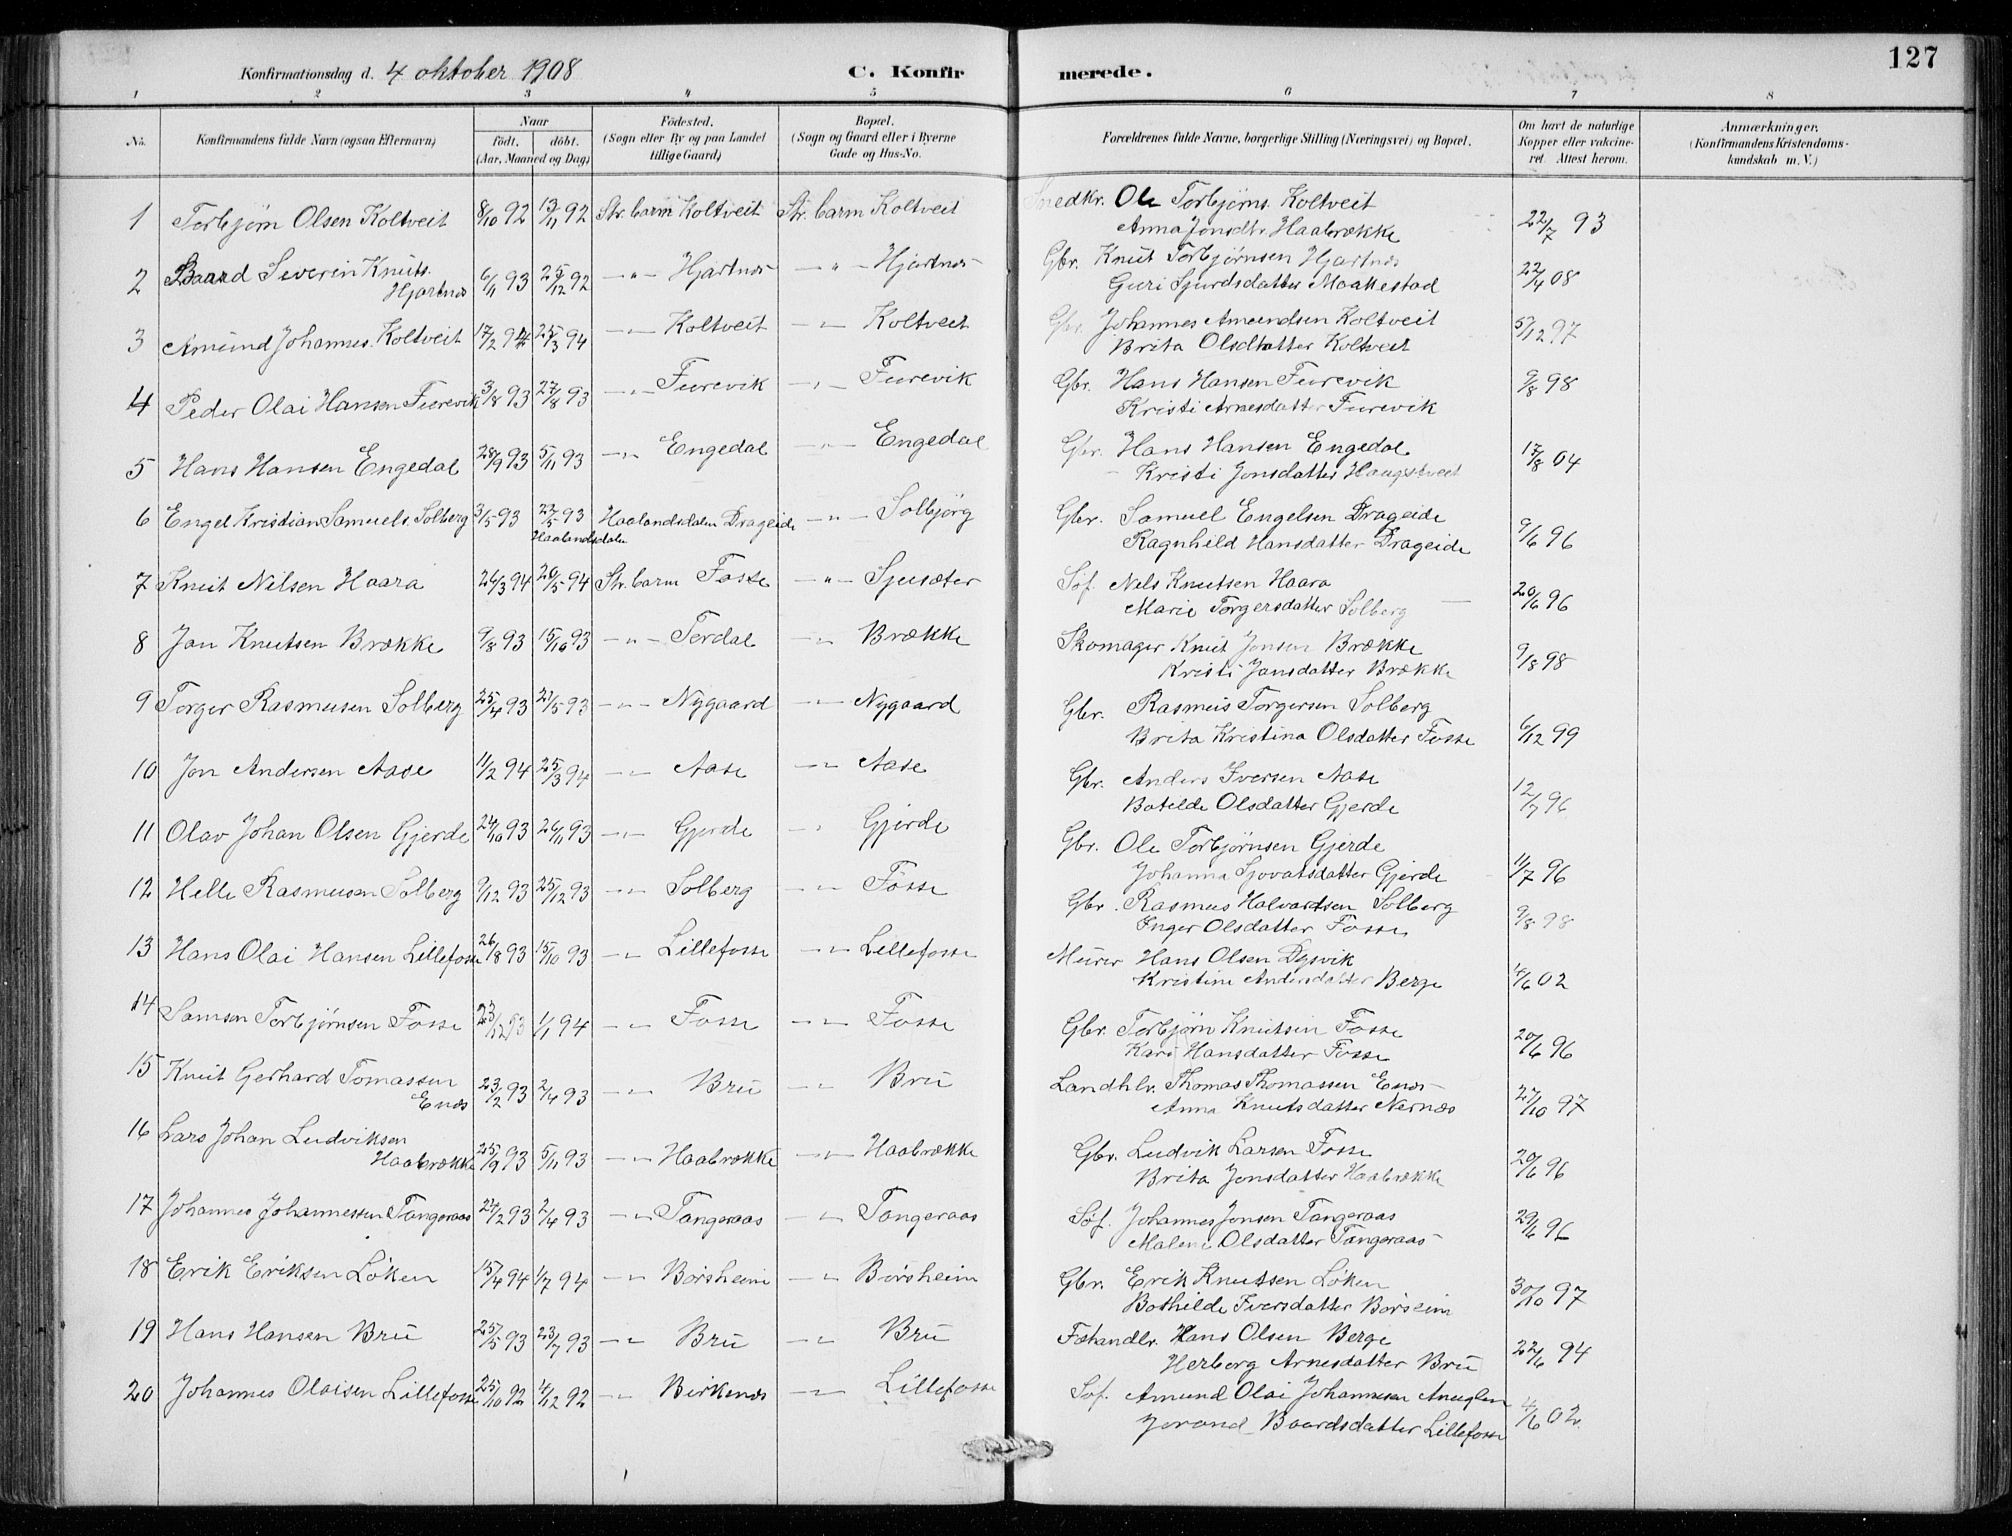 127
Konfirmationsdag d. 4 oktober 1908 C. Konfirmerede.
1 2 3 4 5 6 7 8
No. Konfirmandens fulde Navn (ogsaa Efternavn) Naar födt. döbt. (Aar, Maaned og Dag) Födested. (Sogn eller By og paa Landet tillige Gaard) Bopæl. (Sogn og Gaard eller i Byerne Gade og Hus-No. Forældrenes fulde Navne, borgerlige Stilling (Næringsvei) og Bopæl. Om havt de naturlige Kopper eller vakcineret. Attest herom. Anmærkninger. (Konfirmandens Kristendomskundskab m. V.)
1 Torbjörn Olsen Koltveit 8/10 92 13/11 92 Str.barm Koltveit Str.barm Koltveit Snedkr. Ole Torbjörns. Koltveit
Anna Jonsdtr. Haabrække 22/7 93
2 Baard Severin Knuts. Hjartnæs 6/11 93 25/12 92 -"- Hjartnæs -"- Hjartnæs Gbr. Knut Torbjørnsen Hjartnæs
Guri Sjurdsdatter Maakestad 22/4 08
3 Amund Johannes. Koltveit 17/2 94 25/3 94 -"- Koltveit -"- Koltveit Gbr. Johannes Amundsen Koltveit
Brita Olsdatter Koltveit 5/12 97
4 Peder Olai Hansen Furevik 3/8 93 27/8 93 -"- Furevik -"- Furevik Gbr. Hans Hansen Furevik
Kristi Arnesdatter Furevik 9/8 98
5 Hans Hansen Engedal 28/9 93 5/11 93 -"- Engedal -"- Engedal Gbr. Hans Hansen Engedal
Kristi Jonsdatter Haugstveit 17/8 04
6 Engel Kristian Samuels. Solberg 3/5 93 22/5 93 Haalandsdalen Drageide -"- Solbjörg Gbr. Samuel Engelsen Drageide
Haalandsdalen Ragnhild Hansdatter Drageide 9/6 96
7 Knut Nilsen Haara 26/3 94 20/5 94 Str.barm Fosse -"- Sjusæter Söf. Nels Knutsen Haara
Marie Torgersdatter Solberg 20/6 96
8 Jon Knutsen Brække 9/8 93 15/10 93 -"- Terdal -"- Brække Skomager Knut Jonsen Brække
Kristi Jansdatter Brække 9/8 98
9 Torger Rasmusen Solberg 25/4 93 21/5 93 -"- Nygaard -"- Nygaard Gbr. Rasmus Torgersen Solberg
Brita Kristina Olsdatter Fosse 6/12 99
10 Jon Andersen Aase 11/2 94 25/3 94 -"- Aase -"- Aase Gbr. Anders Iversen Aase
Botilde Olsdatter Gjerde 12/7 96
11 Olav Johan Olsen Gjerde 24/10 93 26/11 93 -"- Gjerde -"- Gjerde Gbr. Ole Torbjørnsen Gjerde
Johanna Sjovatsdatter Gjerde 11/7 96
12 Helle Rasmusen Solberg 9/12 93 25/12 93 -"- Solberg -"- Fosse Gbr. Rasmus Halvardsen Solberg
Inger Olsdatter Fosse 9/8 98
13 Hans Olai Hansen Lillefosse 26/8 93 15/10 93 -"- Lillefosse -"- Lillefosse Murer Hans Olsen Dysvik
Kristine Andersdatter Berge 4/6 02
14 Samson Torbjørnsen Fosse 23/12 93 1/1 94 -"- Fosse -"- Fosse Gbr. Torbjörn Knutsen Fosse
Kari Hansdatter Fosse 20/6 96
15 Knut Gerhard Tomassen Enæs 23/2 93 2/4 93 -"- Bru -"- Bru Landhlr. Thomas Thomassen Enæs
Anna Knutsdatter Nernæs 27/10 97
16 Lars Johan Ludviksen Haabrække 25/9 93 5/11 93 -"- Haabrække -"- Haabrække Gbr. Ludvik Larsen Fosse
Brita Jonsdatter Haabrække 20/6 96
17 Johannes Johannessen Tangeraas 24/2 93 2/4 93 -"- Tangeraas -"- Tangeraas Söf. Johannes Jonsen Tangeraas
Malene Olsdatter Tangeraas 29/6 96
18 Erik Eriksen Löken 15/4 94 1/7 94 -"- Börsheim -"- Börsheim Gbr. Erik Knutsen Löken
Bothilde Iversdatter Börseim 30/10 97
19 Hans Hansen Bru 25/5 93 23/7 93 -"- Bru -"- Bru Fæhandlr. Hans Olsen Berge
Herborg Arnesdatter Bru 22/6 94
20 Johannes Olaisen Lillefosse 25/10 92 4/12 92 -"- Birkenæs -"- Lillefosse Söf. Amund Olai Johannesen Anuglen
Jorand Baardsdatter Lillefosse 4/6 02.